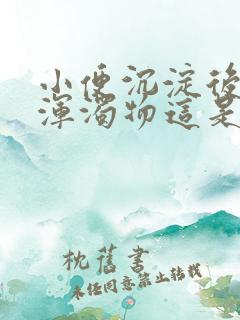 小便沉淀後
渾濁物這是
枕舊書
未经同意禁止转载